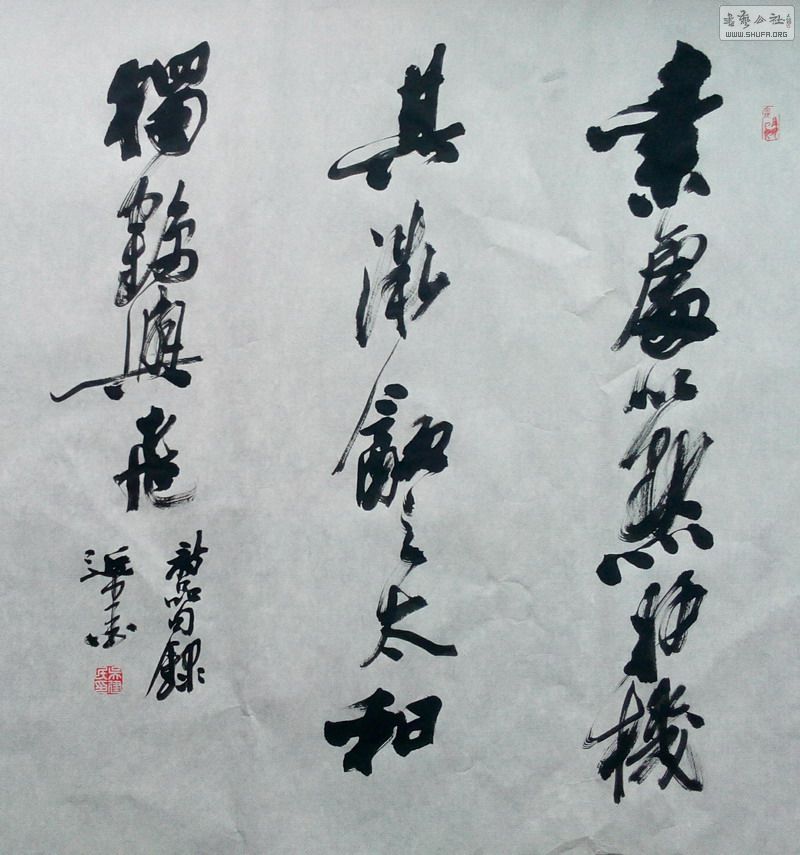 素處以默妙機
其微飲之太和
獨鶴與飛
詩品句錄
書藝公社
WWW.SHUFA.ORG